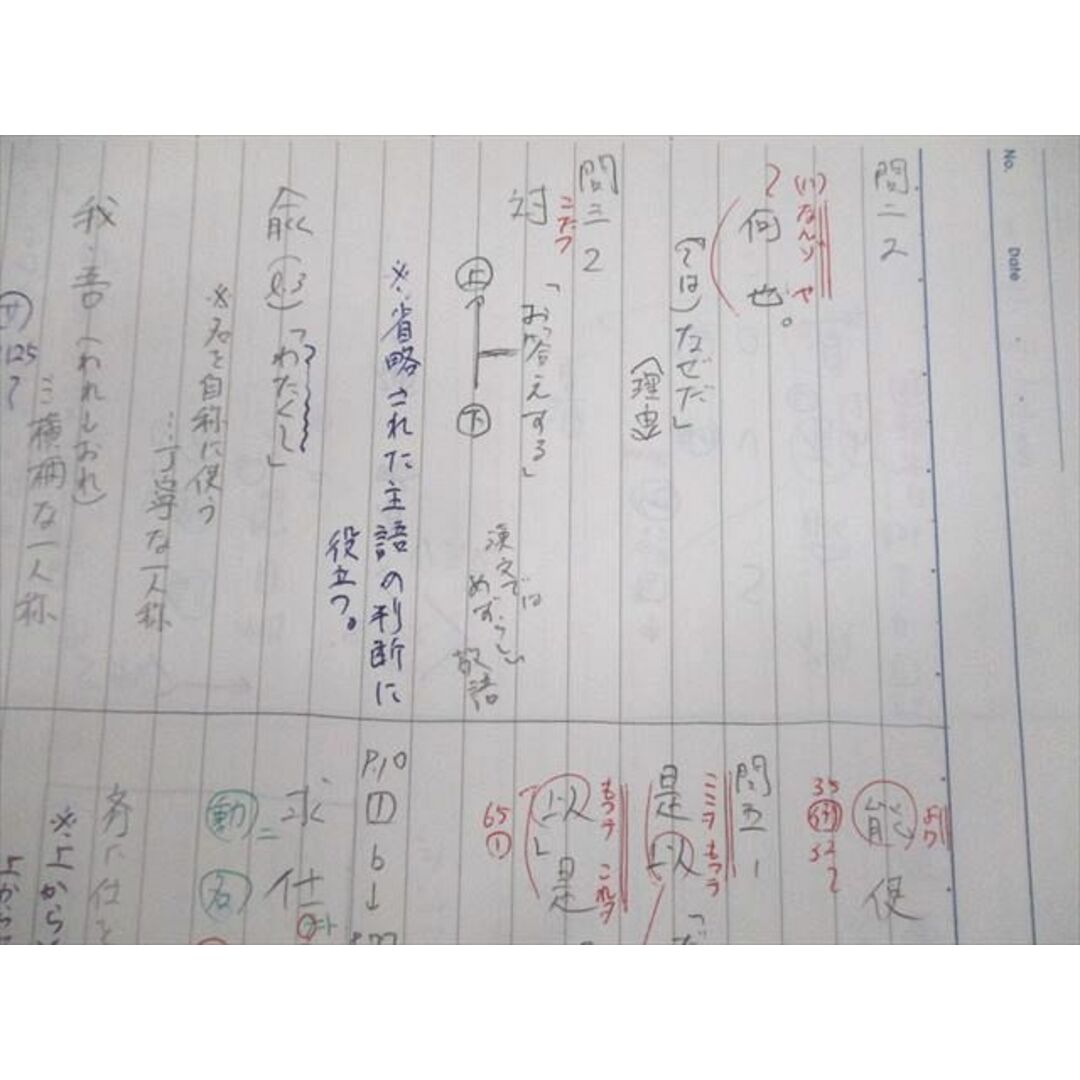 No.
Date
問二 2
なんソ や
何也。
(では)なぜだ」
(理由)
問三 2
こたフ
対「お答えする」
上
下
漢文では
めずらしい
敬語
※省略された主語の判断に
役立つ。
兪(ゆ)「わたくし」
※名を自称に使う
…丁寧な一人称
我・吾(われ・おれ)
…横柄な一人称
サ
125
能便
よク
35
問五 1
是以
ここヲ もつテ
以是
もつテ これヲ
65
①
P.10
① 6
求仕
動=名
ート
仕を
※上から
上から